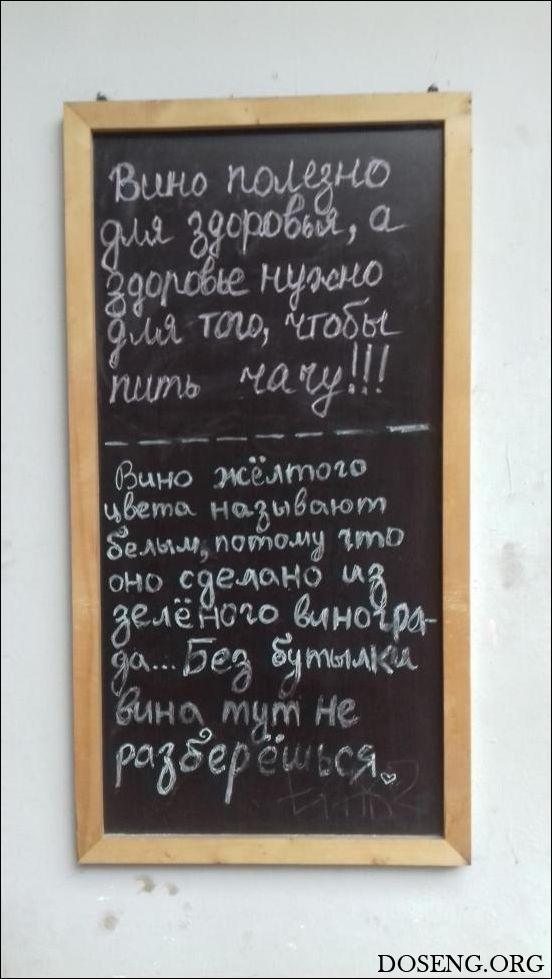 Вино полезно
для здоровья, а
здоровье нужно
для того, чтобы
пить чачу!!!
Вино жёлтого
цвета называют
белым, потому что
оно сделано из
зелёного виногра-
да... Без бутылки
вина тут не
разберёшься.
DOSENG.ORG